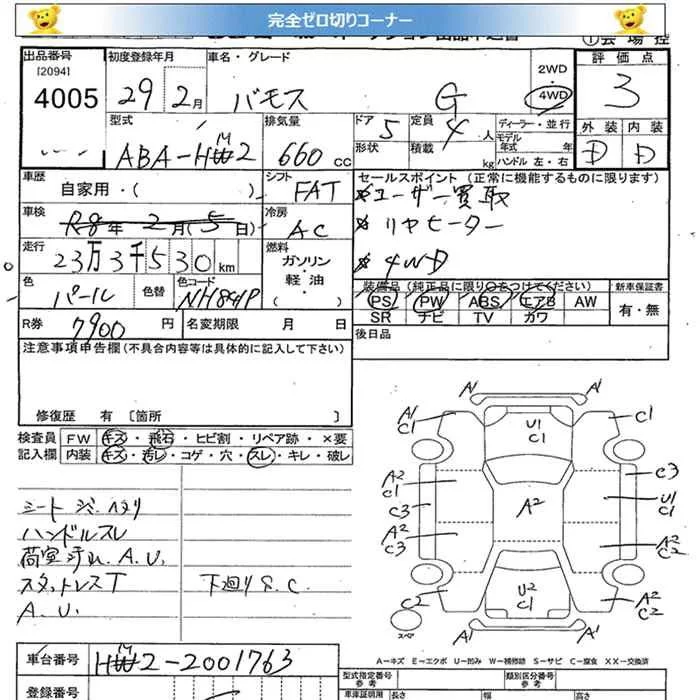 完全ゼロ切りコーナー
①会場控
出品番号 初度登録年月 車名・グレード 2WD 評価点
[2094]
4005 29年2月 バモス G 4WD 3
型式 排気量 ドア 5 定員 4 人 ディーラー・並行 外装 内装
ABA-HM2 660 CC 形状 積載 kg モデル年式 年 ハンドル 左・右 D D
車歴 自家用・( ) シフト FAT セールスポイント (正常に機能するものに限ります)
*ユーザー買取
車検 R8年2月(5日) 冷房 AC *リヤヒーター
走行 23万3千530km 燃料 ガソリン・軽油・( ) *4WD
色 パール 色替 色コード NH841P 装備品(純正品に限り○をつけてください) 新車保証書
PS PW ABS エアB AW 有・無
SR ナビ TV カワ
R券 7900円 名変期限 月 日 後日品
注意事項申告欄(不具合内容等は具体的に記入して下さい)
修復歴 有 〔箇所 〕
検査員 FW キズ・飛石・ヒビ割・リペア跡・×要
記入欄 内装 キズ・汚レ・コゲ・穴・スレ・キレ・破レ
A1 A1
A1 C1 U1 C1 C1
A2 C1 C3 A2 C3 U1 C1
A2 C3 A2 C2
C2 U2 C1 A2 C2
スペア A1 A1
ハンドルスレ
荷室汚れ、A.U.
スタットレスT 下廻りS.C.
A.U.
A―キズ E―エクボ U―凹み W―補修跡 S―サビ C―腐食 XX―交換済
車台番号 HM2-2001763
型式指定番号 参考 類別区分番号 参考
登録番号 車庫証明用 長さ 幅 高さ